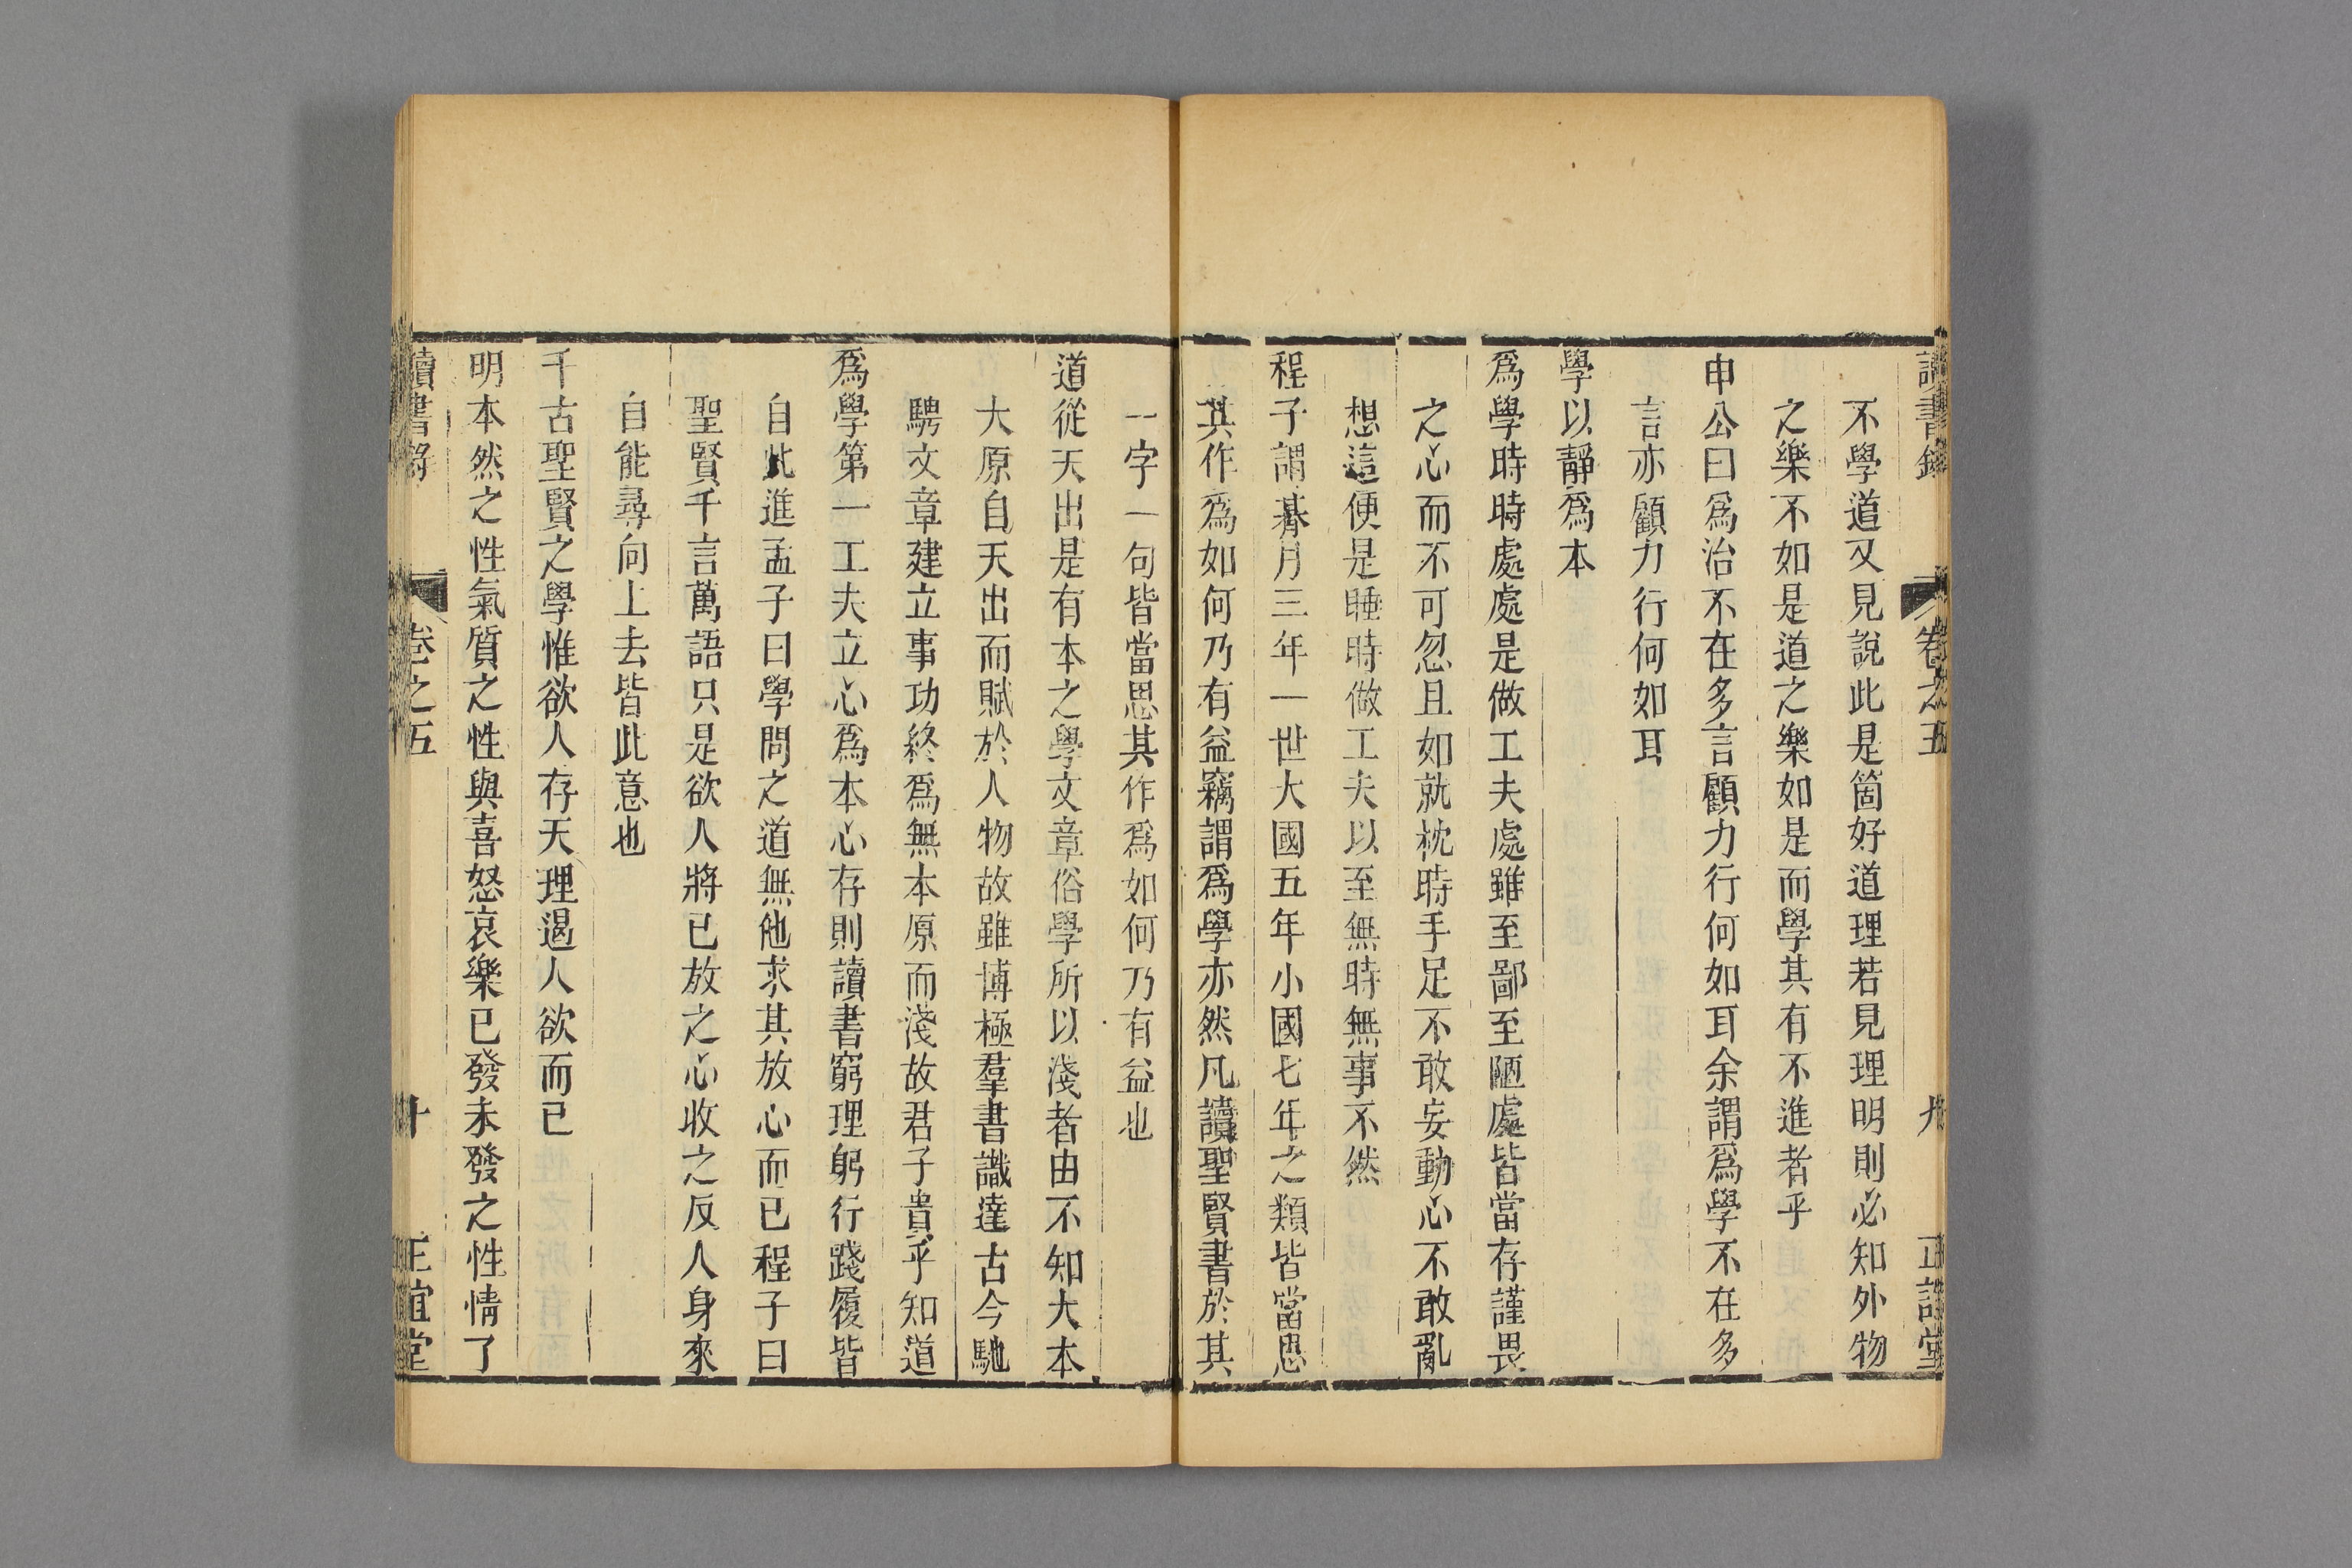 讀書錄 卷之五 九 正誼堂
不學道又見說此是箇好道理若見理明則必知外物
之樂不如是道之樂如是而學其有不進者乎
申公曰爲治不在多言顧力行何如耳余謂爲學不在多
言亦顧力行何如耳
學以靜爲本
爲學時時處處是做工夫處雖至鄙至陋處皆當存謹畏
之心而不可忽且如就枕時手足不敢妄動心不敢亂
想這便是睡時做工夫以至無時無事不然
程子謂朞月三年一世大國五年小國七年之類皆當思
其作爲如何乃有益竊謂爲學亦然凡讀聖賢書於其
一字一句皆當思其作爲如何乃有益也
道從天出是有本之學文章俗學所以淺者由不知大本
大原自天出而賦於人物故雖博極羣書識達古今馳
騁文章建立事功終爲無本原而淺故君子貴乎知道
爲學第一工夫立心爲本心存則讀書窮理躬行踐履皆
自此進孟子曰學問之道無他求其放心而已程子曰
聖賢千言萬語只是欲人將已放之心收之反人身來
自能尋向上去皆此意也
千古聖賢之學惟欲人存天理遏人欲而已
明本然之性氣質之性與喜怒哀樂已發未發之性情了
讀書錄 卷之五 十 正誼堂